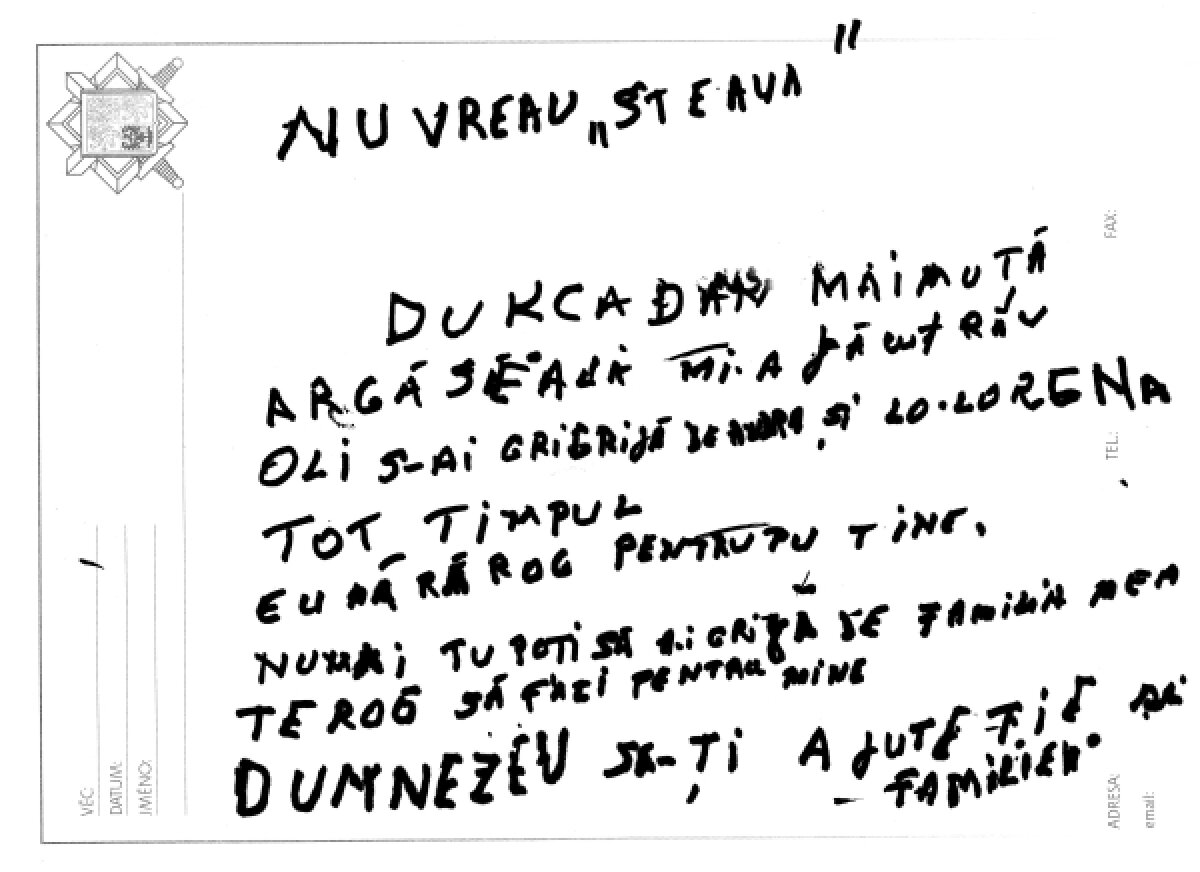 NU VREAU „STEAUA"
DUKCADAN MAIMUȚĂ
ARGĂSEALĂ MI-A FĂCUT RĂU
OLI S-AI GRIGRIJĂ DE ȘI LO-LORENA
TOT TIMPUL
EU MĂ RĂ ROG PENTRUTU TINE.
NUMAI TU POȚI SĂ AI GRIJĂ DE FAMILIA MEA
TE ROG SĂ FACI PENTRU MINE
DUMNEZEU SĂ-ȚI AJUTE ȚIE
FAMILIEI
FAX:
TEL.:
ADRESA:
email:
VĚC:
DATUM:
JMÉNO: